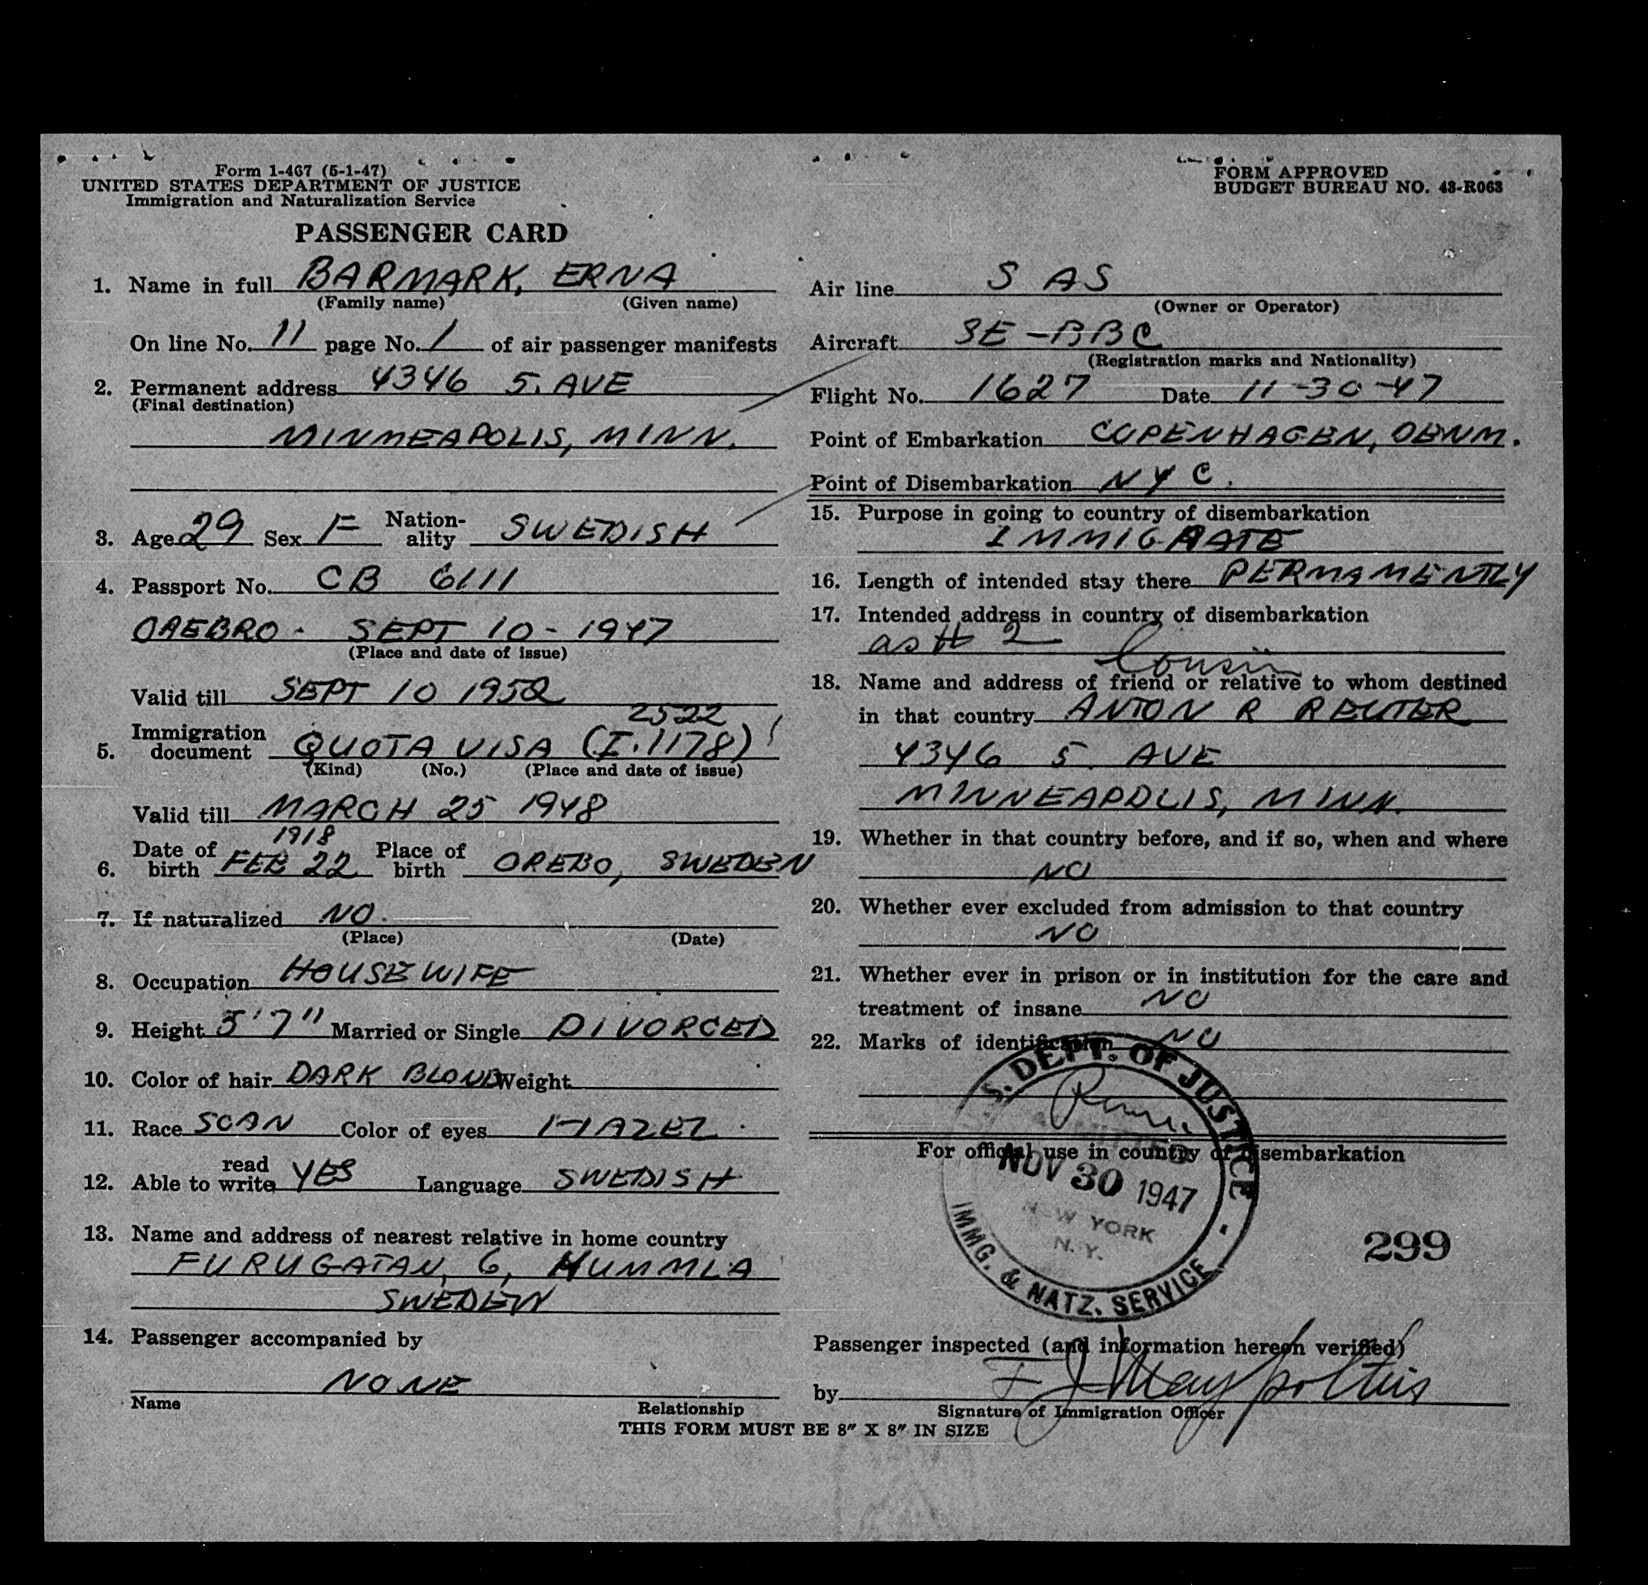 Form I-467 (5-1-47)
UNITED STATES DEPARTMENT OF JUSTICE
Immigration and Naturalization Service
FORM APPROVED
BUDGET BUREAU NO. 43-R063
PASSENGER CARD
1. Name in full BARMARK, ERNA
(Family name) (Given name)
On line No. 11 page No. 1 of air passenger manifests
2. Permanent address 4346 5. AVE
(Final destination)
MINNEAPOLIS, MINN.
3. Age 29 Sex F Nation-ality SWEDISH
4. Passport No. CB 6111
OREBRO - SEPT 10 - 1947
(Place and date of issue)
Valid till SEPT 10 1952
2522
5. Immigration document QUOTA VISA (I.1178)
(Kind) (No.) (Place and date of issue)
Valid till MARCH 25 1948
1918
6. Date of birth FEB 22 Place of birth OREBO, SWEDEN
7. If naturalized NO.
(Place) (Date)
8. Occupation HOUSEWIFE
9. Height 5'7" Married or Single DIVORCED
10. Color of hair DARK BLOND Weight
11. Race SCAN Color of eyes HAZEL
12. Able to read write YES Language SWEDISH
13. Name and address of nearest relative in home country
FURUGATAN, 6, HUMMLA
SWEDEN
14. Passenger accompanied by
NONE
Name Relationship
Air line S AS
(Owner or Operator)
Aircraft SE-BBC
(Registration marks and Nationality)
Flight No. 1627 Date 11-30-47
Point of Embarkation COPENHAGEN, DENM.
Point of Disembarkation NYC.
15. Purpose in going to country of disembarkation
IMMIGRATE
16. Length of intended stay there PERMAMENTLY
17. Intended address in country of disembarkation
as # 2
Cousin
18. Name and address of friend or relative to whom destined
in that country ANTON R REUTER
4346 5. AVE
MINNEAPOLIS, MINN.
19. Whether in that country before, and if so, when and where
NO
20. Whether ever excluded from admission to that country
NO
21. Whether ever in prison or in institution for the care and
treatment of insane NO
22. Marks of identification NO
For official use in country of disembarkation
U.S. DEPT. OF JUSTICE
ADMITTED
NOV 30 1947
NEW YORK
N.Y.
IMMG. & NATZ. SERVICE
299
Passenger inspected (and information hereon verified)
by
Signature of Immigration Officer
THIS FORM MUST BE 8" X 8" IN SIZE